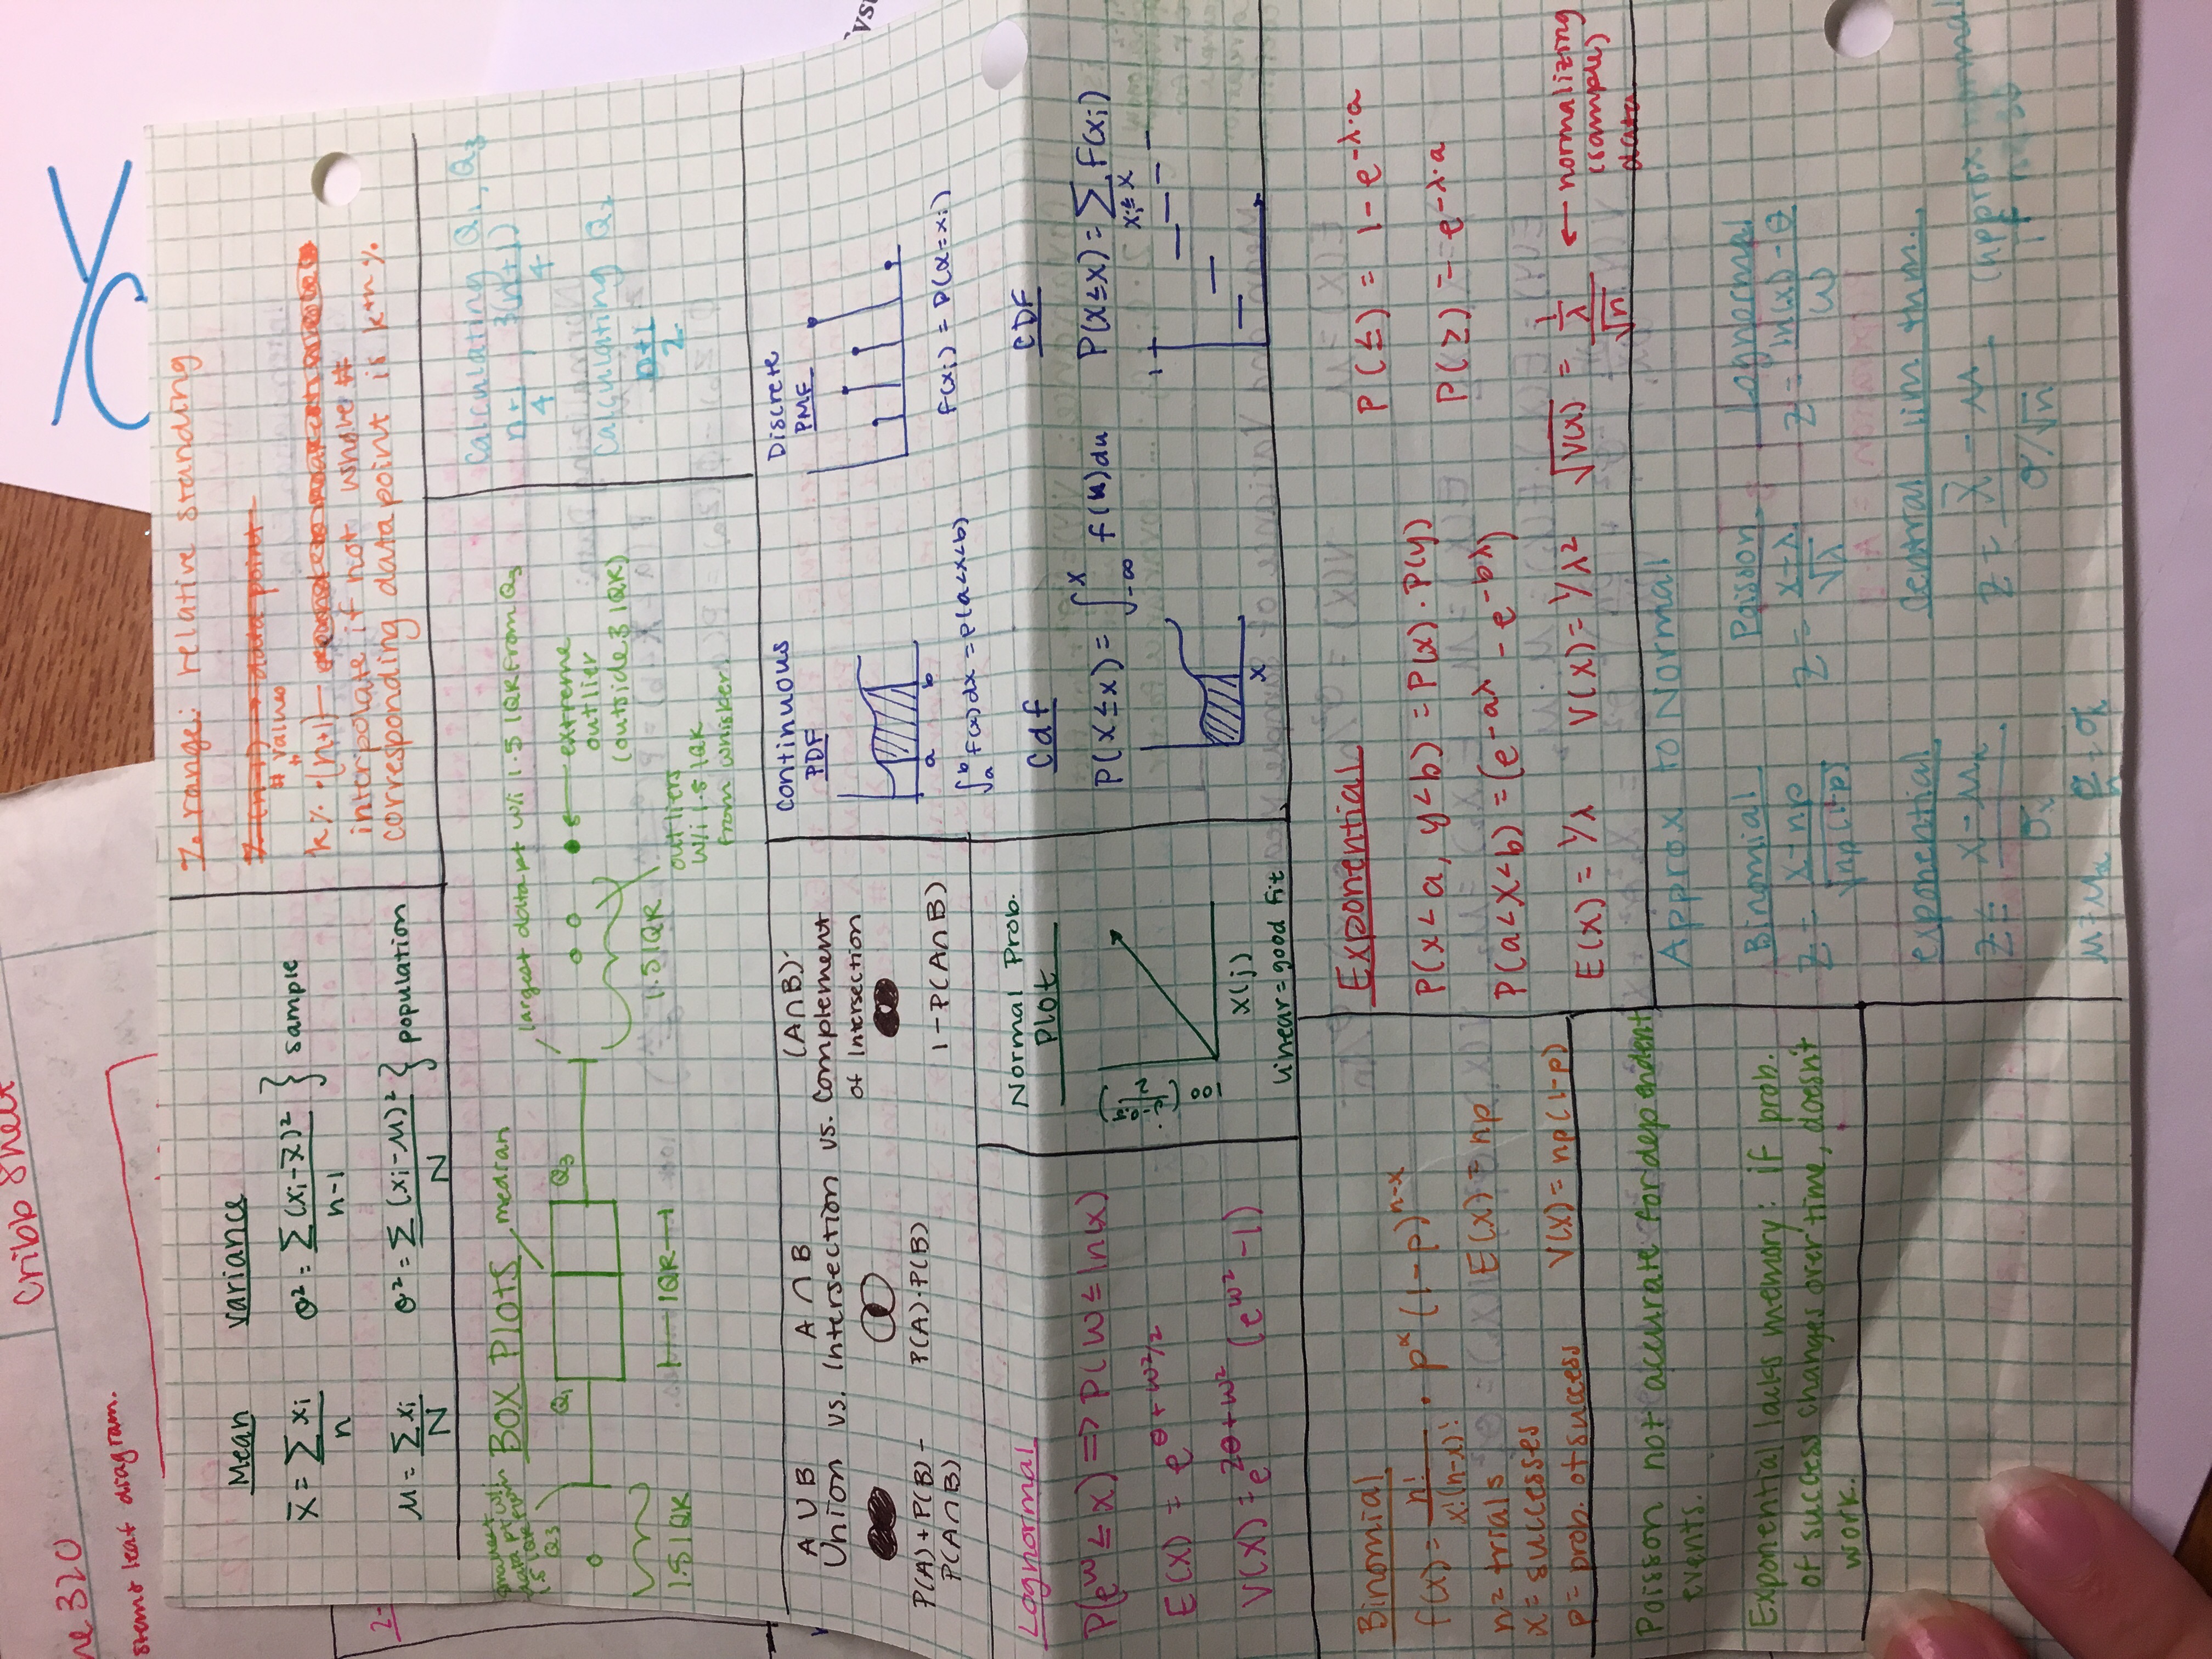 Cribb Sheet
ne 320
stem & leaf diagram.
2-
Mean
variance
x̄ = Σ xi / n
σ² = Σ (xi - x̄)² / n-1 } sample
μ = Σ xi / N
σ² = Σ (xi - μ)² / N } population
% range: relative standing
# values
k% · (n+1)
interpolate if not whole #
corresponding data point is kth %
smallest
data pt w/i
1.5 IQR from
Q3
BOX PLOTS
median
largest data pt w/i 1.5 IQR from Q3
Q1
Q3
extreme
outlier
(outside 3 IQR)
1.5 IQR
IQR
1.5 IQR
outliers
w/i 1.5 IQR
from whisker.
Calculating Q1, Q3
n+1 / 4 , 3(n+1) / 4
Calculating Q2
n+1 / 2
A ∪ B
A ∩ B
(A∩B)'
Union vs. Intersection vs. Complement
of Intersection
P(A) + P(B) -
P(A∩B)
P(A)·P(B)
1 - P(A∩B)
Continuous
PDF
a b
∫ₐᵇ f(x)dx = P(a<x<b)
Discrete
PMF
f(xi) = P(x=xi)
Cdf
P(X≤x) = ∫₋∞ˣ f(u)du
x
CDF
P(X≤x) = Σ f(xi)
xi≤x
1
Lognormal
P(e^w ≤ x) => P(W ≤ ln(x)
E(X) = e^θ+ω²/2
V(X) = e^2θ+ω² (e^ω² - 1)
Normal Prob.
Plot
100 (j-0.5 / 2)
x(j)
linear = good fit
Binomial
f(x) = n! / x!(n-x)! · p^x (1-p)^n-x
n = trials
E(X) = np
x = successes
p = prob. of success
V(X) = np(1-p)
Exponential
P(≤) = 1 - e^-λ·a
P(x<a, y<b) = P(x)·P(y)
P(≥) = e^-λ·a
P(a<X<b) = (e^-aλ - e^-bλ)
E(X) = 1/λ
V(X) = 1/λ²
√V(X) = 1/λ / √n
← normalizing
(sample)
data
Poisson not accurate for dependent
events.
Exponential lacks memory: if prob.
of success changes over time, doesn't
work.
Approx to Normal
Binomial
Poisson
Lognormal
Z = x-np / √np(1-p)
Z = x-λ / √λ
Z = ln(x) - θ / ω
exponential
Central lim thm.
Z = x - μx / σx
Z = x̄ - μ / σ/√n
(Approx normal
if
μ = μx